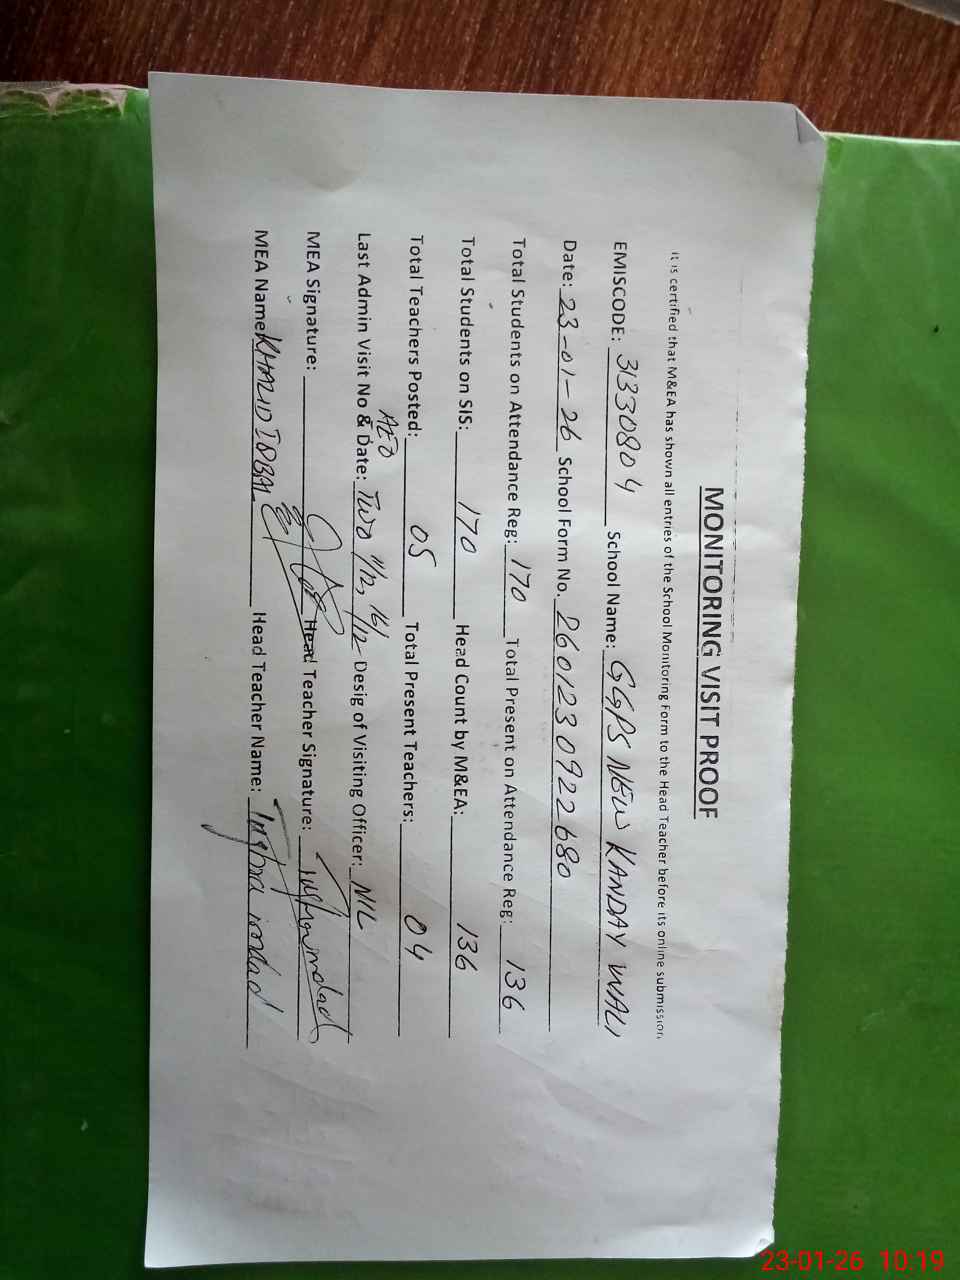 MONITORING VISIT PROOF
It is certified that M&EA has shown all entries of the School Monitoring Form to the Head Teacher before its online submission
EMISCODE: 31330804 School Name: GGPS NEW KANDAY WALI
Date: 23-01-26 School Form No. 2601230922680
Total Students on Attendance Reg: 170 Total Present on Attendance Reg: 136
Total Students on SIS: 170 Head Count by M&EA: 136
Total Teachers Posted: 05 Total Present Teachers: 04
AEO
Last Admin Visit No & Date: Two 11/12, 16/12 Desig of Visiting Officer: NIL
MEA Signature: Head Teacher Signature:
MEA Name KHALID IQBAL Head Teacher Name: imdad
23-01-26 10:19